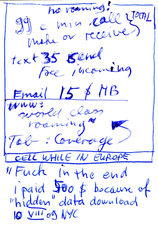 no roaming!
99 c min call (TOTAL
make or receive)
text 35 send
free incoming
Email 15 $ MB
www:
"world class
roaming"
Tab: Coverage
CELL WHILE IN EUROPE
"Fuck in the end
i paid 500 $ because of
"hidden" data download
10 VIII 09 NYC